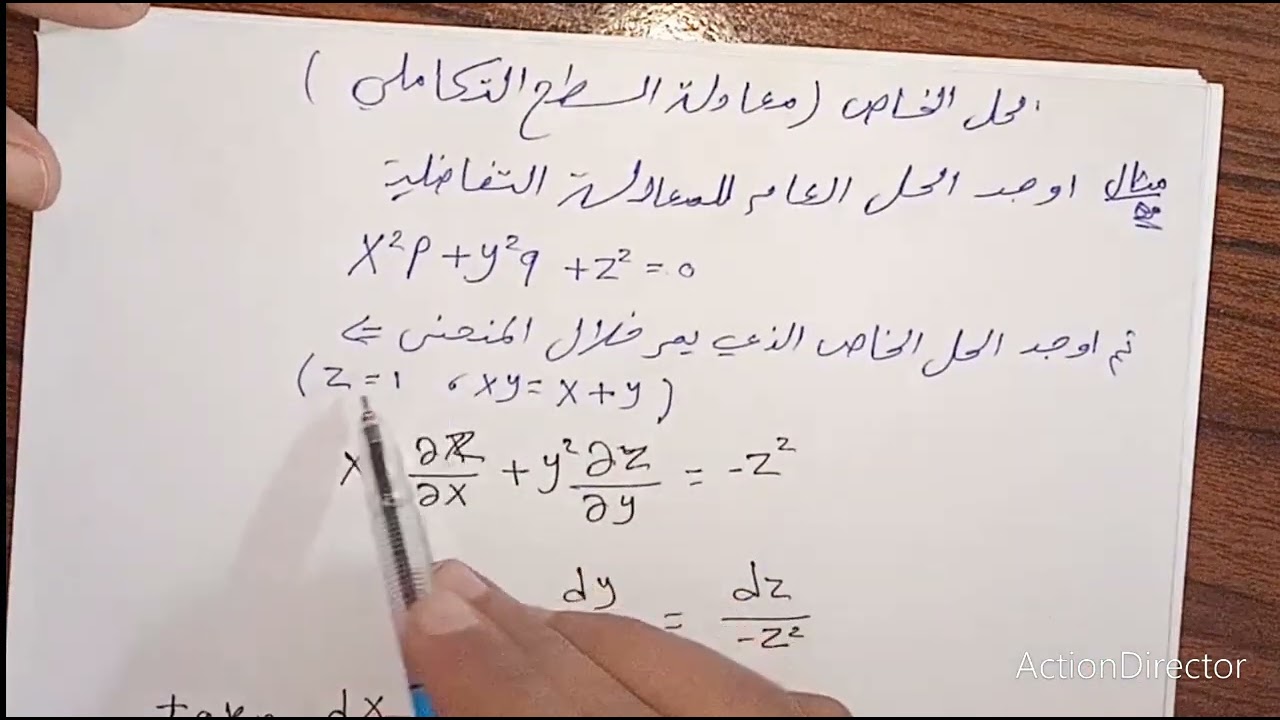 الحل الخاص (معادلة السطح التكاملي)
مثال اوجد الحل العام للمعادلة التفاضلية
x²p + y²q + z² = 0
ثم اوجد الحل الخاص الذي يمر خلال المنحنى ⇐
(z = 1 ، xy = x + y)
x ∂z/∂x + y² ∂z/∂y = -z²
dy = dz/-z²
dx
ActionDirector